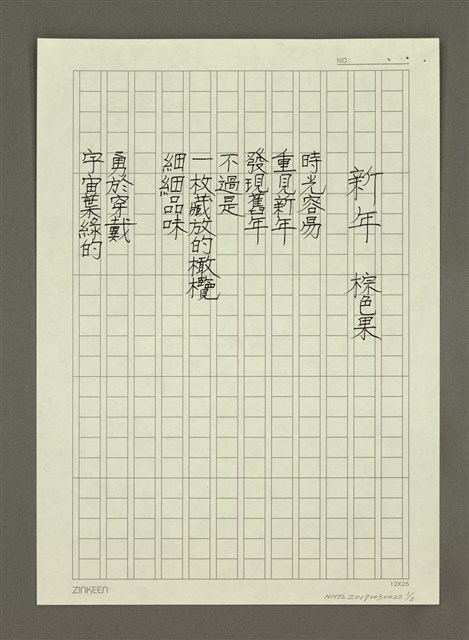 NO:
新年 棕色果
時光容易
重見新年
發現舊年
不過是
一枚藏放的橄欖
細細品味
勇於穿戴
宇宙葉綠的
ZINKEEN
12X25
NMTL20190030022 1/2